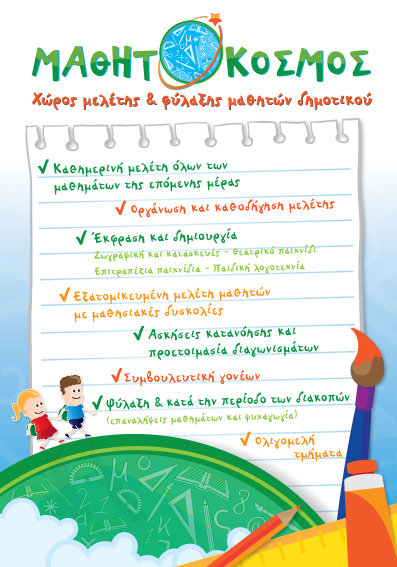 ΜΑΘΗΤΟΚΟΣΜΟΣ
Χώρος μελέτης & φύλαξης μαθητών δημοτικού
✓ Καθημερινή μελέτη όλων των
μαθημάτων της επόμενης μέρας
✓ Οργάνωση και καθοδήγηση μελέτης
✓ Έκφραση και δημιουργία
Ζωγραφική και κατασκευές - Θεατρικό παιχνίδι
Επιτραπέζια παιχνίδια - Παιδική λογοτεχνία
✓ Εξατομικευμένη μελέτη μαθητών
με μαθησιακές δυσκολίες
✓ Ασκήσεις κατανόησης και
προετοιμασία διαγωνισμάτων
✓ Συμβουλευτική γονέων
✓ Φύλαξη & κατά την περίοδο των διακοπών
(επαναλήψεις μαθημάτων και ψυχαγωγία)
✓ Ολιγομελή
τμήματα